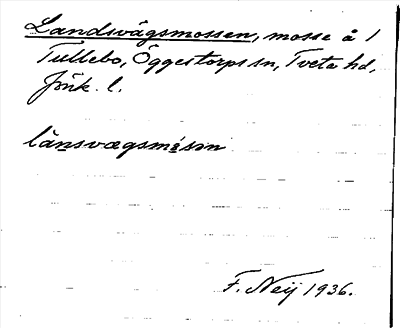 Landsvägsmossen, mosse å 1
Tullebo, Öggestorps sn, Tveta hd,
Jönk. l.
länsvægsmåsan
F. Neij 1936.